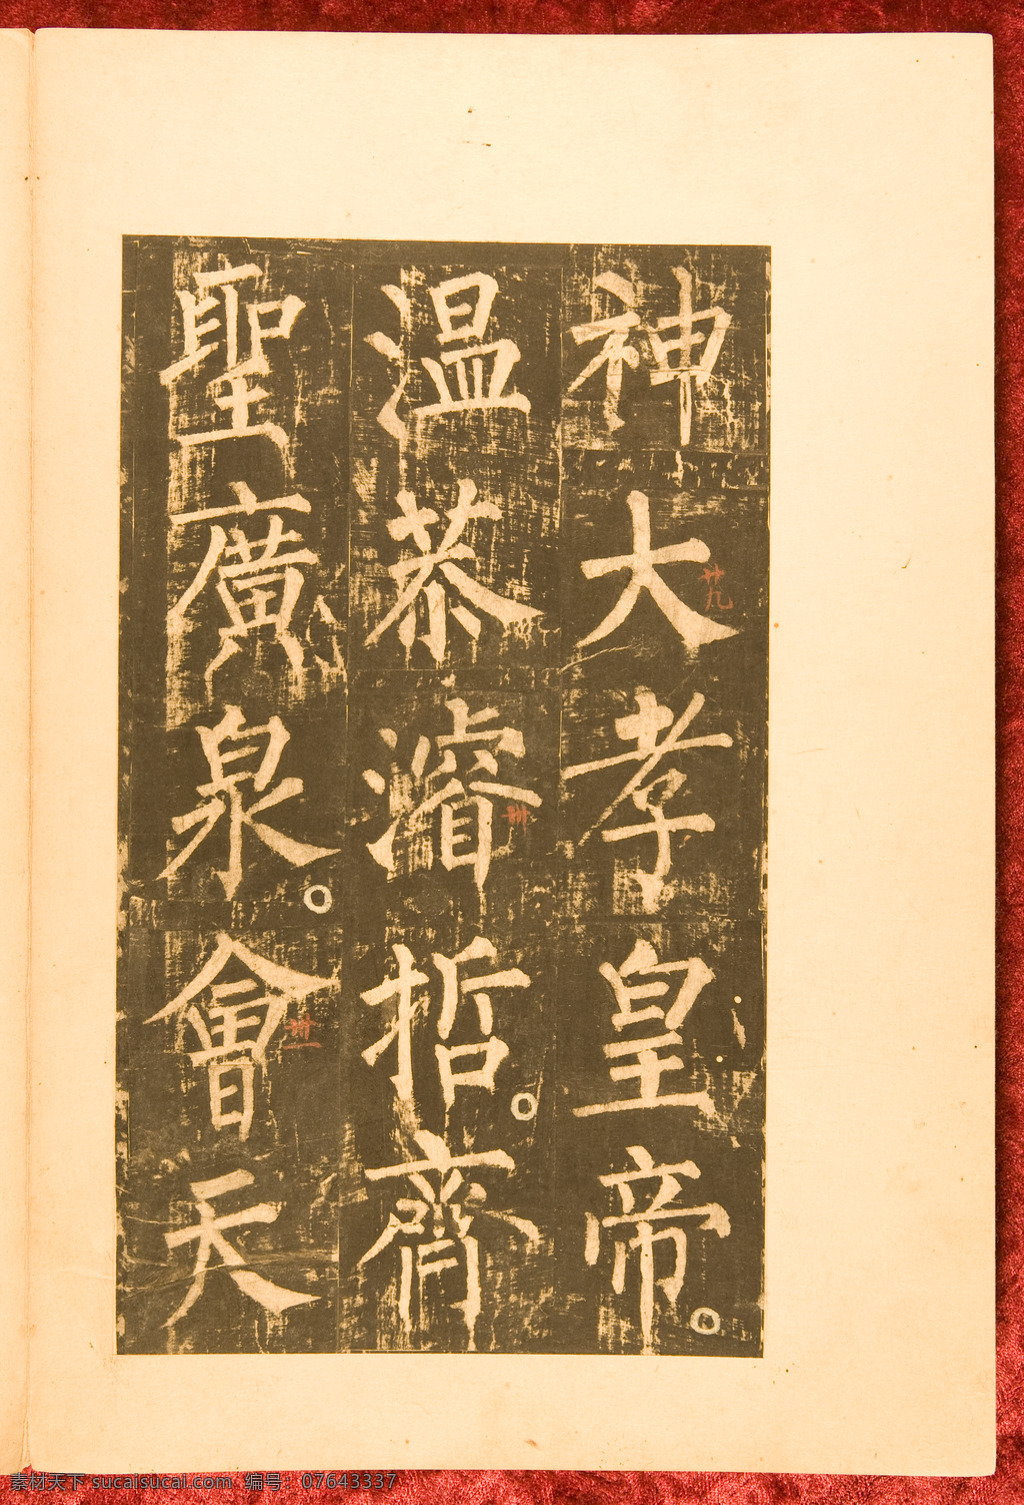 神大孝皇帝。
温恭濬哲。齊
聖廣泉。會天
廿九
卅
卅一
素材天下 sucaisucai.com 编号：07643337